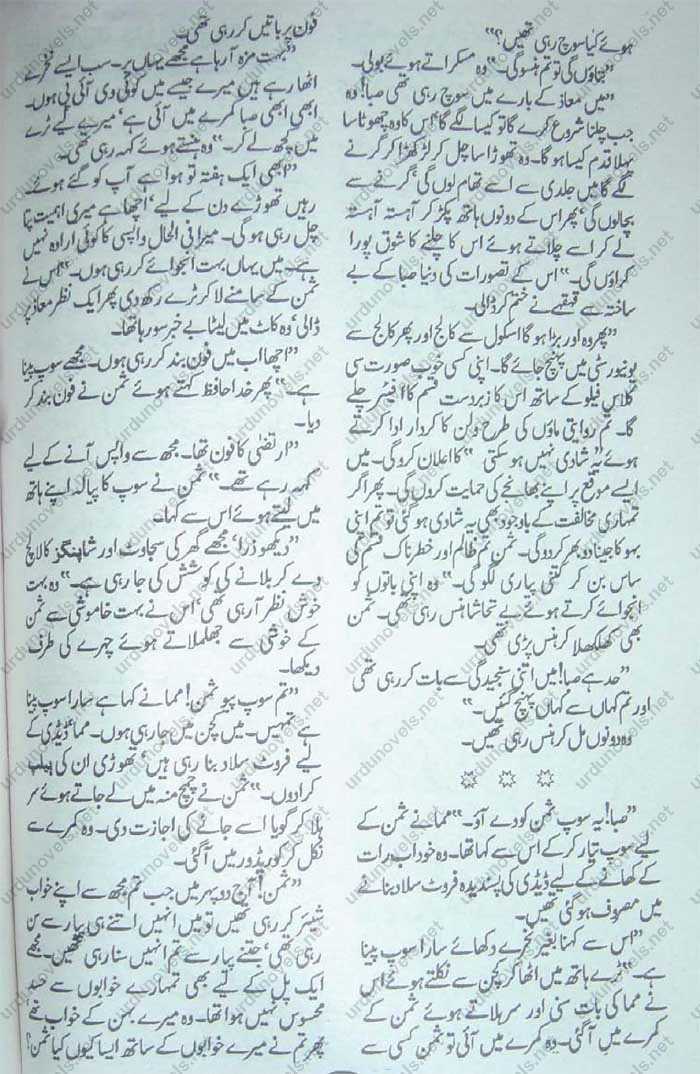 ہوئے کیا سوچ رہی تھیں؟"
"بتاؤں گی تو تم ہنسو گی۔" وہ مسکراتے ہوئے بولی۔
"میں معاذ کے بارے میں سوچ رہی تھی صبا! وہ
جب چلنا شروع کرے گا تو کیسا لگے گا' اس کا وہ چھوٹا سا
پہلا قدم کیسا ہو گا۔ وہ تھوڑا سا چل کر لڑکھڑا کر گرنے
لگے گا میں جلدی سے اسے تھام لوں گی' گرنے سے
بچالوں گی' پھر اس کے دونوں ہاتھ پکڑ کر آہستہ آہستہ
لے کر اسے چلاتے ہوئے اس کا چلنے کا شوق پورا
کراؤں گی۔" اس کے تصورات کی دنیا صبا کے بے
ساختہ سے قہقہے نے ختم کر ڈالی۔
"پھر وہ اور بڑا ہو گا اسکول سے کالج اور پھر کالج سے
یونیورسٹی میں پہنچ جائے گا۔ اپنی کسی خوب صورت سی
کلاس فیلو کے ساتھ اس کا زبردست قسم کا افیئر چلے
گا۔ تم روایتی ماؤں کی طرح ولن کا کردار ادا کرتے
ہوئے "یہ شادی نہیں ہو سکتی" کا اعلان کرو گی۔ میں
ایسے موقع پر اپنے بھانجے کی حمایت کروں گی۔ پھر اگر
تمہاری مخالفت کے باوجود بھی یہ شادی ہو گئی تو تم اپنی
بہو کا جینا دوبھر کر دو گی۔ ثمن تم ظالم اور خطرناک قسم کی
ساس بن کر کتنی پیاری لگو گی۔" وہ اپنی باتوں کو
انجوائے کرتے ہوئے بے تحاشا ہنس رہی تھی۔ ثمن
بھی کھلکھلا کر ہنس پڑی تھی۔
"حد ہے صبا! میں اتنی سنجیدگی سے بات کر رہی تھی
اور تم کہاں سے کہاں پہنچ گئیں۔"
وہ دونوں مل کر ہنس رہی تھیں۔
"صبا! یہ سوپ ثمن کو دے آؤ۔" مما نے ثمن کے
لیے سوپ تیار کر کے اس سے کہا تھا۔ وہ خود اب رات
کے کھانے کے لیے ڈیڈی کی پسندیدہ فروٹ سلاد بنانے
میں مصروف ہو گئی تھیں۔
"اس سے کہنا بغیر نخرے دکھائے سارا سوپ پینا
ہے۔" ٹرے ہاتھ میں اٹھا کر کچن سے نکلتے ہوئے اس
نے مما کی بات سنی اور سر ہلاتے ہوئے ثمن کے
کمرے میں آ گئی۔ وہ کمرے میں آئی تو ثمن کسی سے
فون پر باتیں کر رہی تھی۔
"بہت مزہ آرہا ہے مجھے یہاں پر۔ سب ایسے نخرے
اٹھا رہے ہیں میرے جیسے میں کوئی وی آئی پی ہوں۔
ابھی ابھی صبا کمرے میں آئی ہے' میرے لیے ٹرے
میں کچھ لے کر۔" وہ ہنستے ہوئے کہہ رہی تھی۔
"ابھی ایک ہفتہ تو ہوا ہے آپ کو گئے ہوئے'
رہیں تھوڑے دن کے لیے' اچھا ہے میری اہمیت پتا
چل رہی ہو گی۔ میرا فی الحال واپسی کا کوئی ارادہ نہیں
ہے۔ میں یہاں بہت انجوائے کر رہی ہوں۔" اس نے
ثمن کے سامنے لا کر ٹرے رکھ دی پھر ایک نظر معاذ پر
ڈالی' وہ کاٹ میں لیٹا بے خبر سو رہا تھا۔
"اچھا اب میں فون بند کر رہی ہوں۔ مجھے سوپ پینا
ہے۔" پھر خدا حافظ کہتے ہوئے ثمن نے فون بند کر
دیا۔
"ارتضیٰ کا فون تھا۔ مجھ سے واپس آنے کے لیے
کہہ رہے تھے۔" ثمن نے سوپ کا پیالہ اپنے ہاتھ
میں لیتے ہوئے اس سے کہا۔
"دیکھو ذرا' مجھے گھر کی سجاوٹ اور شاپنگز کا لالچ
دے کر بلانے کی کوشش کی جارہی ہے۔" وہ بہت
خوش نظر آرہی تھی' اس نے بہت خاموشی سے ثمن
کے خوشی سے جھلملاتے ہوئے چہرے کی طرف
دیکھا۔
"تم سوپ پیو ثمن! مما نے کہا ہے سارا سوپ پینا
ہے تمہیں۔ میں کچن میں جا رہی ہوں۔ مما' ڈیڈی کے
لیے فروٹ سلاد بنا رہی ہیں' تھوڑی ان کی ہیلپ
کرا دوں۔" ثمن نے چمچ منہ میں لے جاتے ہوئے سر
ہلا کر گویا اسے جانے کی اجازت دی۔ وہ کمرے سے
نکل کر کوریڈور میں آ گئی۔
"ثمن! آج دوپہر میں جب تم مجھ سے اپنے خواب
شیئر کر رہی تھیں تو میں انہیں اتنے ہی پیار سے سن
رہی تھی' جتنے پیار سے تم انہیں سنا رہی تھیں۔ مجھے
ایک پل کے لیے بھی تمہارے خوابوں سے حسد
محسوس نہیں ہوا تھا۔ وہ میرے بہن کے خواب تھے
پھر تم نے میرے خوابوں کے ساتھ ایسا کیوں کیا ثمن؟
urdunovels.net